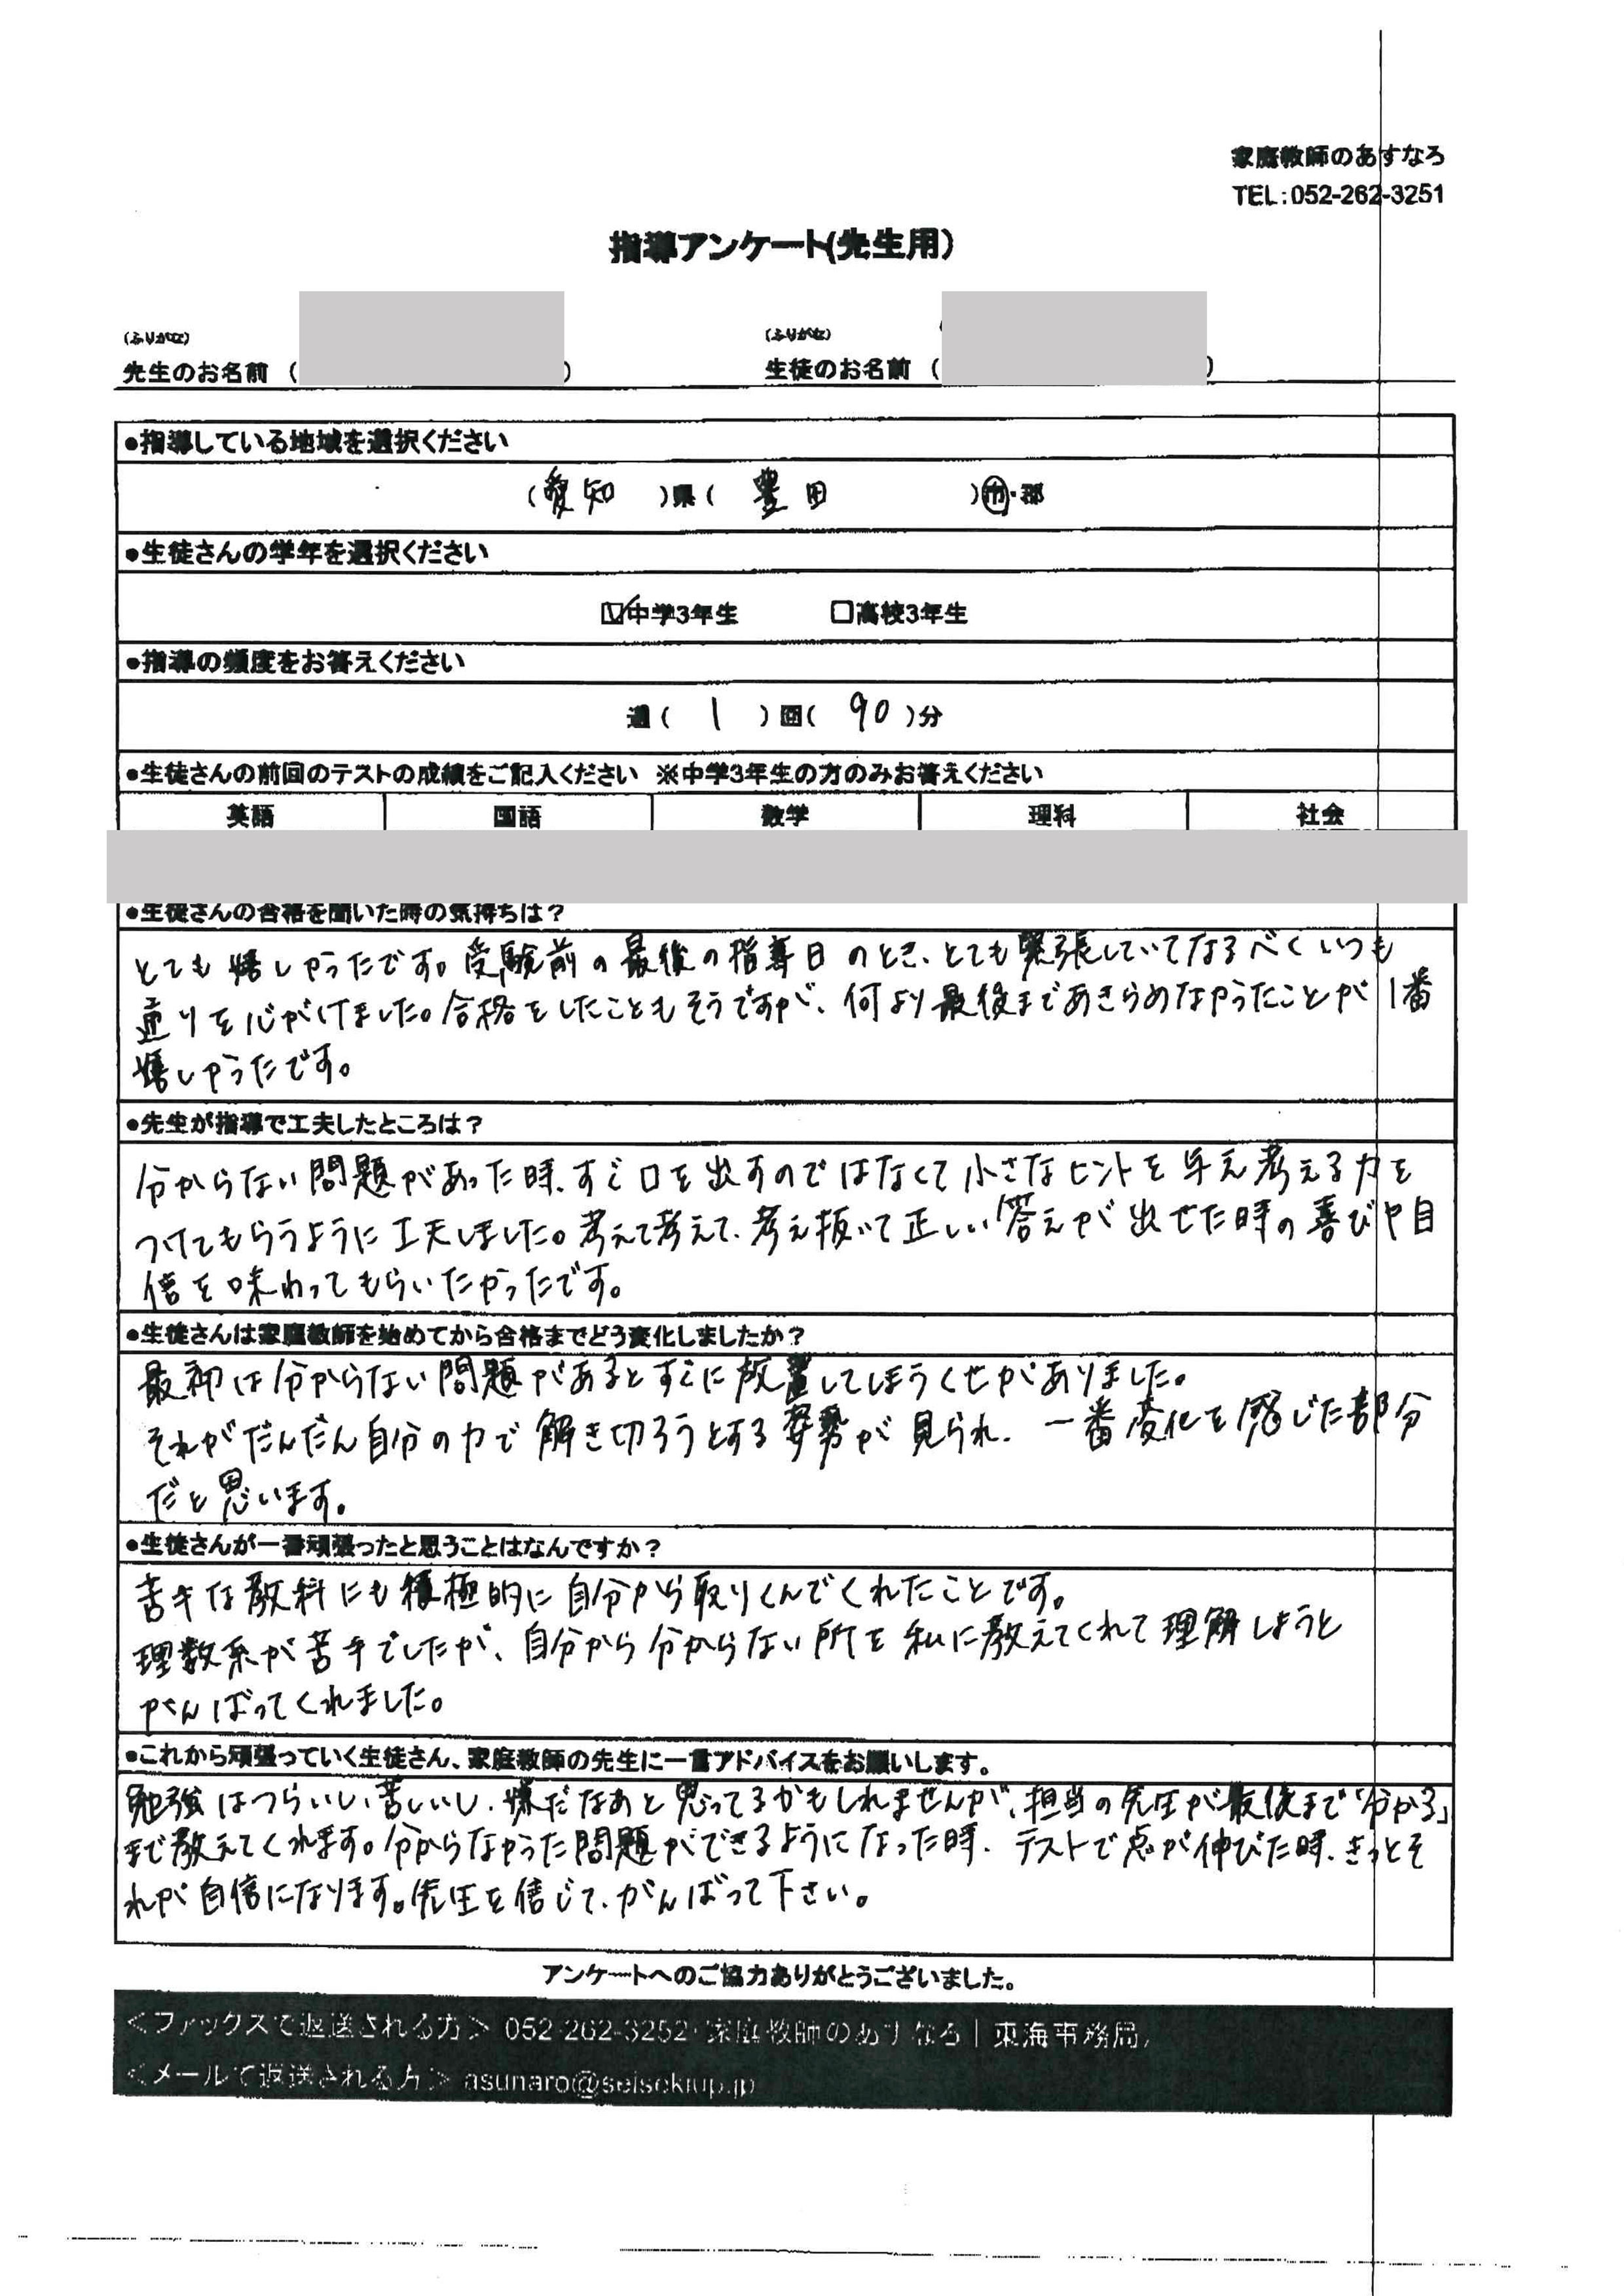 家庭教師のあすなろ
TEL:052-262-3251
指導アンケート(先生用)
(ふりがな)
(ふりがな)
先生のお名前 ( )
生徒のお名前 ( )
●指導している地域を選択ください
(愛知 )県( 豊田 )市・郡
●生徒さんの学年を選択ください
☑中学3年生 □高校3年生
●指導の頻度をお答えください
週( 1 )回( 90 )分
●生徒さんの前回のテストの成績をご記入ください ※中学3年生の方のみお答えください
英語 国語 数学 理科 社会
●生徒さんの合格を聞いた時の気持ちは?
とても嬉しかったです。受験前の最後の指導日のとき、とても緊張していてなるべくいつも
通りを心がけました。合格をしたこともそうですが、何より最後まであきらめなかったことが1番
嬉しかったです。
●先生が指導で工夫したところは?
分からない問題があった時、すぐ口を出すのではなくて小さなヒントを与え考える力を
つけてもらうように工夫しました。考えて考えて、考え抜いて正しい答えが出せた時の喜びや自
信を味わってもらいたかったです。
●生徒さんは家庭教師を始めてから合格までどう変化しましたか?
最初は分からない問題があるとすぐに放置してしまうくせがありました。
それがだんだん自分の力で解き切ろうとする姿勢が見られ、一番変化を感じた部分
だと思います。
●生徒さんが一番頑張ったと思うことはなんですか?
苦手な教科にも積極的に自分から取りくんでくれたことです。
理数系が苦手でしたが、自分から分からない所を私に教えてくれて理解しようと
がんばってくれました。
●これから頑張っていく生徒さん、家庭教師の先生に一言アドバイスをお願いします。
勉強はつらいし、苦しいし、嫌だなあと思ってるかもしれませんが、担当の先生が最後まで「分かる」
まで教えてくれます。分からなかった問題ができるようになった時、テストで点が伸びた時、きっとそ
れが自信になります。先生を信じて、がんばって下さい。
アンケートへのご協力ありがとうございました。
＜ファックスで返送される方＞ 052-262-3252 家庭教師のあすなろ 東海事務局
＜メールで返送される方＞ asunaro@seisekiup.jp